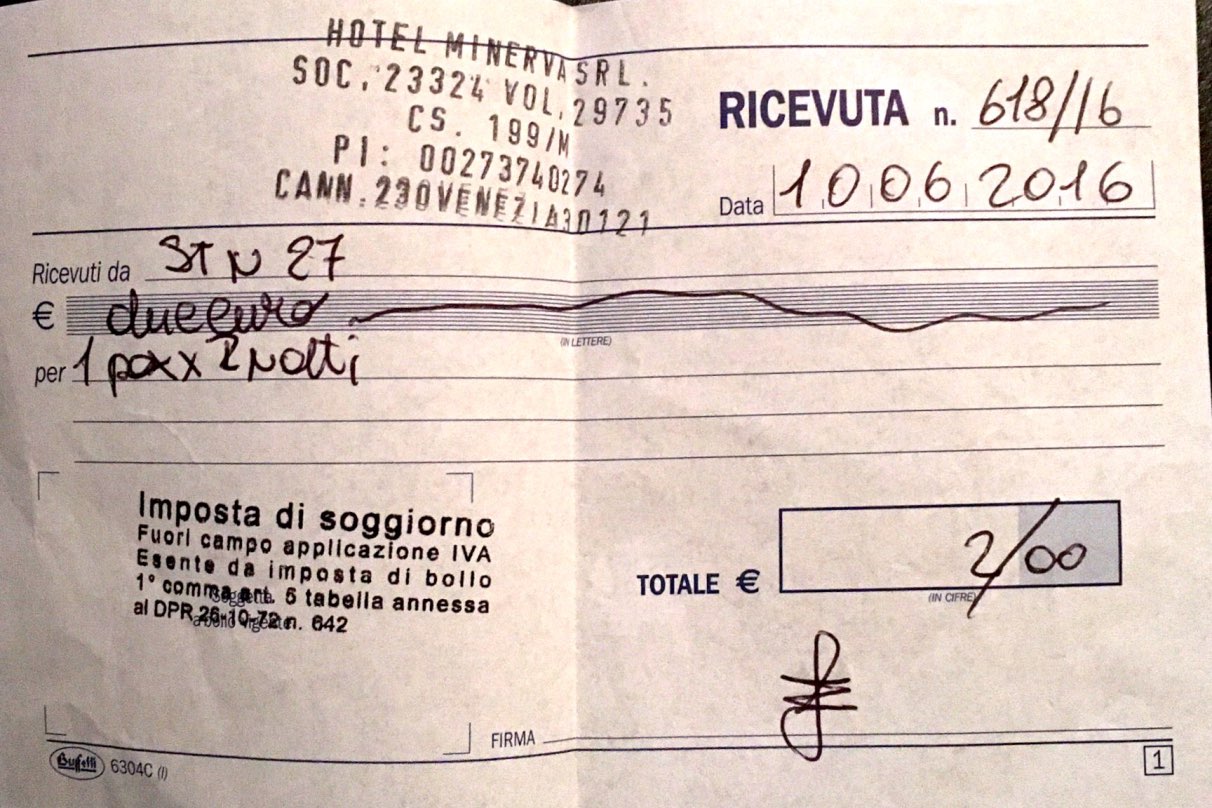 HOTEL MINERVA SRL.
SOC. 23324 VOL. 29735
CS. 199/M
PI: 00273740274
CANN. 230 VENEZIA 30121
RICEVUTA n. 618/16
Data 10 06 2016
Ricevuti da ST N 27
€ due euro
(IN LETTERE)
per 1 pax x 2 notti
Imposta di soggiorno
Fuori campo applicazione IVA
Esente da imposta di bollo
1° comma art. 5 tabella annessa
al DPR 26-10-72 n. 642
TOTALE € 2/00
(IN CIFRE)
FIRMA
Buffetti 6304C (I)
1